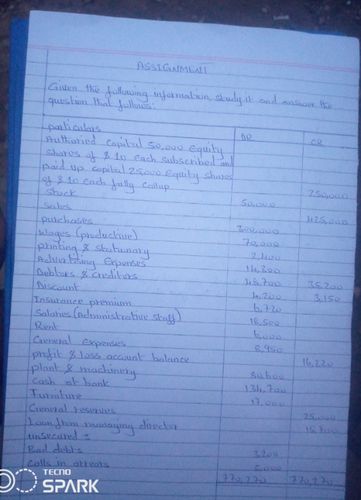 ASSIGNMENT
Given the following information, study it and answer the
question that follows:
particulars DR CR
Authorised capital 50,000 Equity
shares of $10 each subscribed and
paid up capital 25,000 equity shares
of $10 each fully callup 250,000
Stock 50,000
Sales 425,000
purchases 300,000
Wages (productive) 70,000
printing & stationary 2,400
Advertising Expenses 14,300
Debtors & creditors 45,700 35,200
Discount 4,200 3,150
Insurance premium 6,720
Salaries (Administrative Staff) 18,500
Rent 6,000
General expenses 8,950
profit & loss account balance 16,220
plant & machinery 80,600
Cash at bank 134,700
Furniture 17,000
General reserves 25,000
Loan from managing director
unsecured = 15,700
Bad debts 3,200
Calls in arrears 5,000
770,270 770,270
TECNO
SPARK